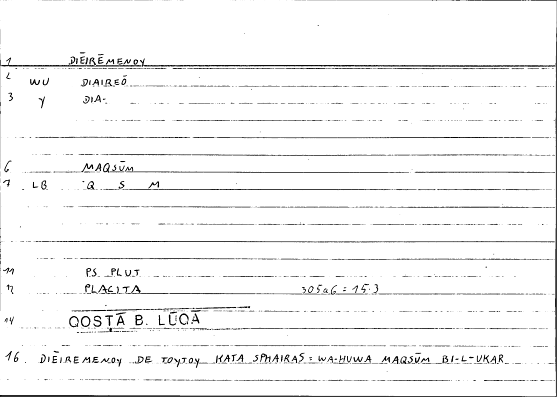 1 DIĒIRĒMENOY
2 WU DIAIREŌ
3 Y DIA-
6 MAQSŪM
7 LB Q S M
11 PS. PLUT.
12 PLACITA 305a6 = 15.3
14 QOSṬĀ B. LŪQĀ
16. DIĒIREMENOY DE TOYTOY KATA SPHAIRAS = WA-HUWA MAQSŪM BI-L-UKAR